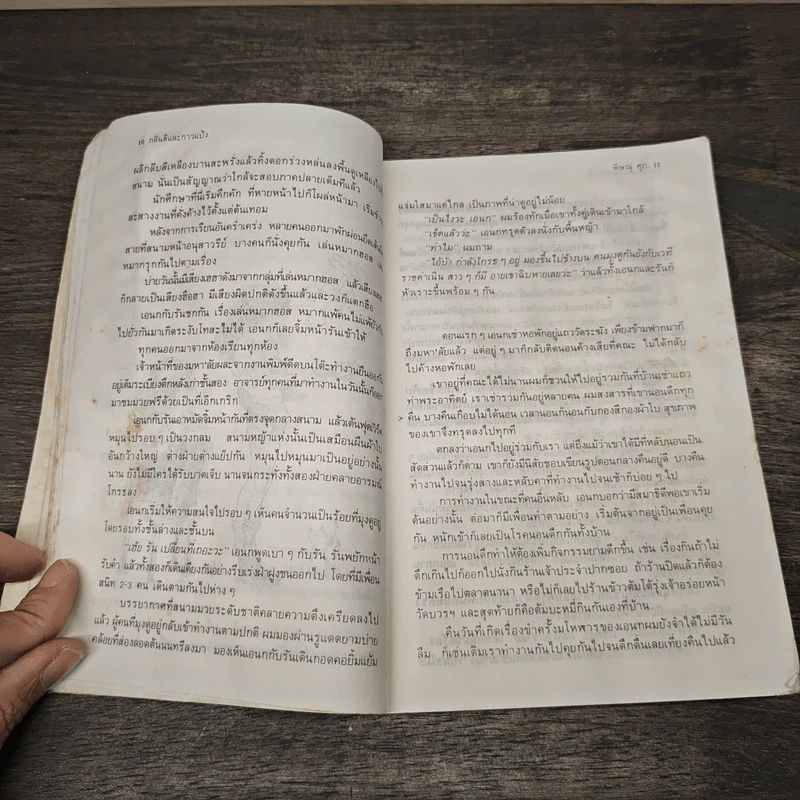 10 กลิ่นสีและกาวแป้ง
ผลิกลีบสีเหลืองบานสะพรั่งแล้วทิ้งดอกร่วงหล่นลงพื้นดูเหลืองไป
สนาม นั่นเป็นสัญญาณว่าใกล้จะสอบภาคปลายเต็มทีแล้ว
นักศึกษาที่นี่เริ่มคึกคัก ที่หายหน้าไปก็โผล่หน้ามา เริ่ม
สะสางงานที่คั่งค้างไว้ตั้งแต่ต้นเทอม
หลังจากการเรียนอันคร่ำเคร่ง หลายคนออกมาพักผ่อนยืดเส้น
สายที่สนามหน้าอนุสาวรีย์ บางคนก็นั่งคุยกัน เล่นหมากฮอส
หมากรุกกันไปตามเรื่อง
บ่ายวันนั้นมีเสียงเฮฮาดังมาจากกลุ่มที่เล่นหมากฮอส แล้วเสียง
ก็กลายเป็นเสียงฮือฮา มีเสียงผิดปกติดังขึ้นแล้วและวงก็แตกฮือ
เอนกกับรันชกกัน เรื่องเล่นหมากฮอส หมากแพ้คนไม่แพ้
ไปยั่วกันมาเกิดระงับโทสะไม่ได้ เอนกก็เลยจิ้มหน้ารันเข้าให้
ทุกคนออกมาจากห้องเรียนทุกห้อง
เจ้าหน้าที่ของมหา'ลัยผละจากงานพิมพ์ดีดบนโต๊ะทำงานยืนออกัน
อยู่เต็มระเบียงตึกหลังเก่าชั้นสอง อาจารย์ทุกคนที่มาทำงานในวันนั้นก็ออก
มาชมมวยฟรีด้วยเป็นที่เอิกเกริก
เอนกกับรันเอาหมัดจิ้มหน้ากันที่ตรงจุดกลางสนาม แล้วเต้นฟุตเวิร์ค
หมุนไปรอบ ๆ เป็นวงกลม สนามหญ้าแห่งนั้นเป็นเสมือนผืนผ้าใบ
อันกว้างใหญ่ ต่างฝ่ายต่างแย็ปกัน หมุนไปหมุนมาเป็นอยู่อย่างนั้น
นาน ยังไม่มีใครได้รับบาดเจ็บ นานจนกระทั่งทั้งสองฝ่ายคลายอารมณ์
โกรธลง
เอนกเริ่มให้ความสนใจไปรอบ ๆ เห็นคนจำนวนเป็นร้อยที่มุงดูอยู่
โดยรอบทั้งชั้นล่างและชั้นบน
“เฮ้ย รัน เปลี่ยนที่เถอะวะ” เอนกพูดเบา ๆ กับรัน รันพยักหน้า
รับคำ แล้วทั้งสองก็เดินเคียงกันอย่างรีบเร่งฝ่าฝูงชนออกไป โดยที่มีเพื่อน
สนิท 2-3 คน เดินตามกันไปห่าง ๆ
บรรยากาศที่สนามมวยระดับชาติคลายความตึงเครียดลงไป
แล้ว ผู้คนที่มุงดูอยู่กลับเข้าทำงานตามปกติ ผมมองผ่านรูแดดยามบ่าย
คล้อยที่ส่องลอดต้นนนทรีลงมา มองเห็นเอนกกับรันเดินกอดคอยิ้มแย้ม
พิษณุ ศุภ. 11
แจ่มใสมาแต่ไกล เป็นภาพที่น่าดูอยู่ไม่น้อย
“เป็นไงวะ เอนก” ผมร้องทักเมื่อเขาทั้งคู่เดินเข้ามาใกล้
“เช็คแล้วว่ะ” เอนกทรุดตัวลงนั่งกับพื้นหญ้า
“ทำไม” ผมถาม
“ไอ้บ้า กำลังโกรธ ๆ อยู่ มองขึ้นไปข้างบน คนมุงดูกันยังกับเวที
ราชดำเนิน สาว ๆ ก็มี อายเขาฉิบหายเลยว่ะ” ว่าแล้วทั้งเอนกและรันก็
หัวเราะขึ้นพร้อม ๆ กัน
ตอนแรก ๆ เอนกเช่าหอพักอยู่แถววัดระฆัง เพียงข้ามฟากมาก็
ถึงมหา'ลัยแล้ว แต่อยู่ ๆ มาก็กลับติดนอนค้างเสียที่คณะ ไม่ได้กลับ
ไปค้างหอพักเลย
เขาอยู่ที่คณะได้ไม่นานผมก็ชวนให้ไปอยู่รวมกันที่บ้านเช่าแถว
ท่าพระอาทิตย์ เราเช่ารวมกันอยู่หลายคน ผมสงสารที่เขานอนดึกทุก
คืน บางคืนเกือบไม่ได้นอน เวลานอนก็นอนกับกองสีกองผ้าใบ สุขภาพ
ของเขาจึงทรุดลงไปทุกที
ตกลงว่าเอนกไปอยู่ร่วมกับเรา แต่ถึงแม้ว่าเขาได้มีที่หลับนอนเป็น
สัดส่วนแล้วก็ตาม เขาก็ยังมีนิสัยชอบเขียนรูปตอนกลางคืนอยู่ดี บางคืน
ทำงานไปจนรุ่งสางและหลับคาที่ทำงานไปจนเช้าก็บ่อย ๆ ไป
การทำงานในขณะที่คนอื่นหลับ เอนกบอกว่ามีสมาธิดีพอเขาเริ่ม
ต้นอย่างนั้น ต่อมาก็มีเพื่อนทำตามอย่าง เริ่มต้นจากอยู่เป็นเพื่อนคุย
กัน หนักเข้าก็เลยเป็นโรคนอนดึกกันทั้งบ้าน
การนอนดึกทำให้ต้องเพิ่มกิจกรรมยามดึกขึ้น เช่น เรื่องกินถ้าไม่
ดึกเกินไปก็ออกไปนั่งกินร้านเจ้าประจำปากซอย ถ้าร้านปิดแล้วก็ต้อง
ข้ามเรือไปตลาดนานา หรือไม่ก็เลยไปร้านข้าวต้มโต้รุ่งเจ้าอร่อยหน้า
วัดบวรฯ และสุดท้ายก็คือต้มบะหมี่กินกันเองที่บ้าน
คืนวันที่เกิดเรื่องขำครั้งมโหฬารของเอนกผมยังจำได้ไม่มีวัน
ลืม ก็เช่นเดิมเราทำงานกันไปคุยกันไปจนดึกดื่นเลยเที่ยงคืนไปแล้ว